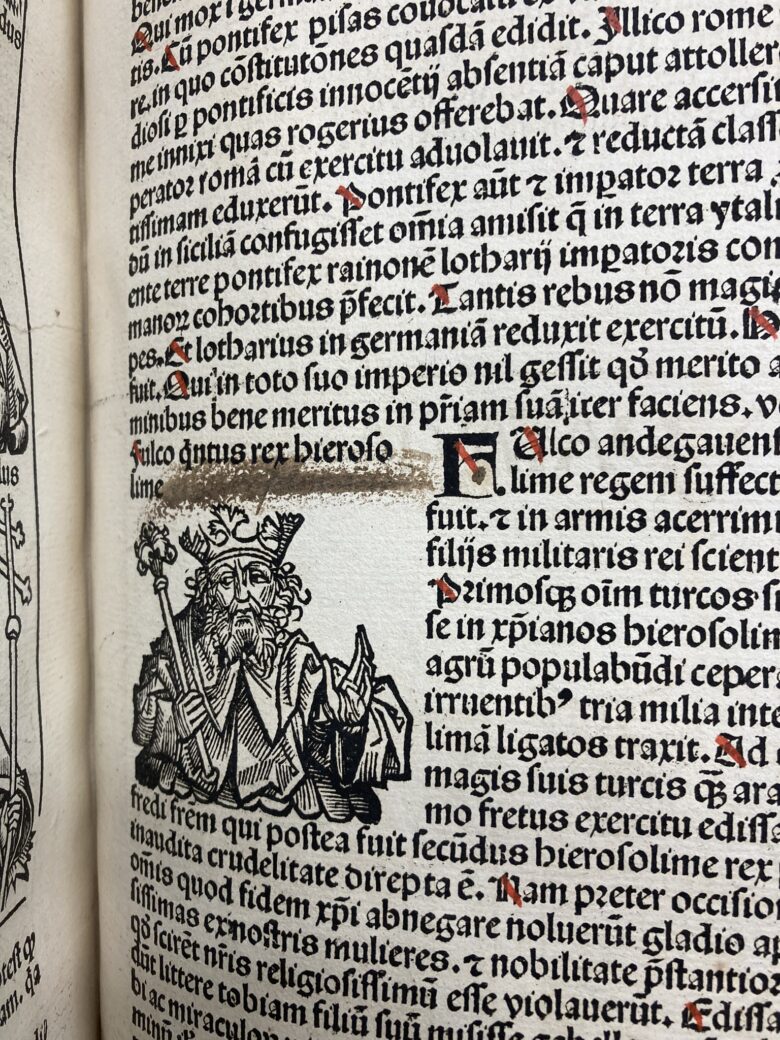 Qui mox i german
tis. Cū pontifex pisas
re. in quo cōstitutōnes quasdā edidit. Illico rome
diosi ꝑ pontificis innocētij absentiā caput attoller
me innixi quas rogerius offerebat. Quare accersi
perator romā cū exercitu aduolauit. ⁊ reductā class
tissimam eduxerūt. Pontifex aūt ⁊ imꝑator terra
dū in siciliā confugisset om̄ia amisit q̄ in terra ytali
ente terre pontifex rainonē lotharij imꝑatoris con
manoꝝ cohortibus p̄fecit. Tantis rebus nō magi
pes. Et lotharius in germaniā reduxit exercitū.
fuit. Qui in toto suo imperio nil gessit qđ merito a
minibus bene meritus in pr̄iam suā iter faciens. v
Fulco q̇ntus rex hieroso
lime
FUlco andegauen
lime regem suffect
fuit. ⁊ in armis acerrim
filijs militaris rei scient
Primosqꝫ oīm turcos s
se in xp̄ianos hierosolim
agrū populabūdi ceper
irruentibꝰ tria milia inte
limā ligatos traxit. Ad
magis suis turcis qꝫ ara
mo fretus exercitu edissa
fredi frēm qui postea fuit secūdus hierosolime rex
inaudita crudelitate direpta ē. Nam preter occisio
om̄is quod fidem xp̄i abnegare noluerūt gladio
sissimas ex nostris mulieres. ⁊ nobilitate p̄stantior
qđ scirēt nr̄is religiosissimū esse violauerūt. Edissa
dūt littere tobiam filiū suū misisse
bi ac miraculo
minū
dus
us
test qꝫ
am. q̇a